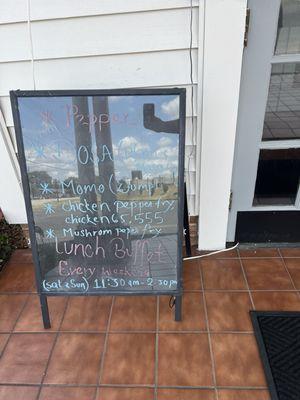 * Pepper
* DOSA
* Momo (2Jumpl
* Chicken pepper fry,
chicken 65, 555
* Mushrom peper fry
Lunch Buffet
Every weekend
(sat & Sun) 11:30 am - 2:30 pm